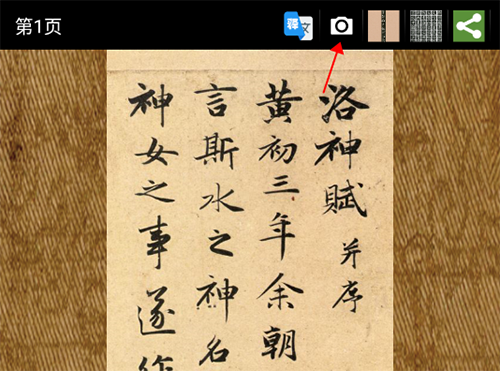 第1页
译文
洛神賦 并序
黄初三年余朝
言斯水之神名
神女之事遂作